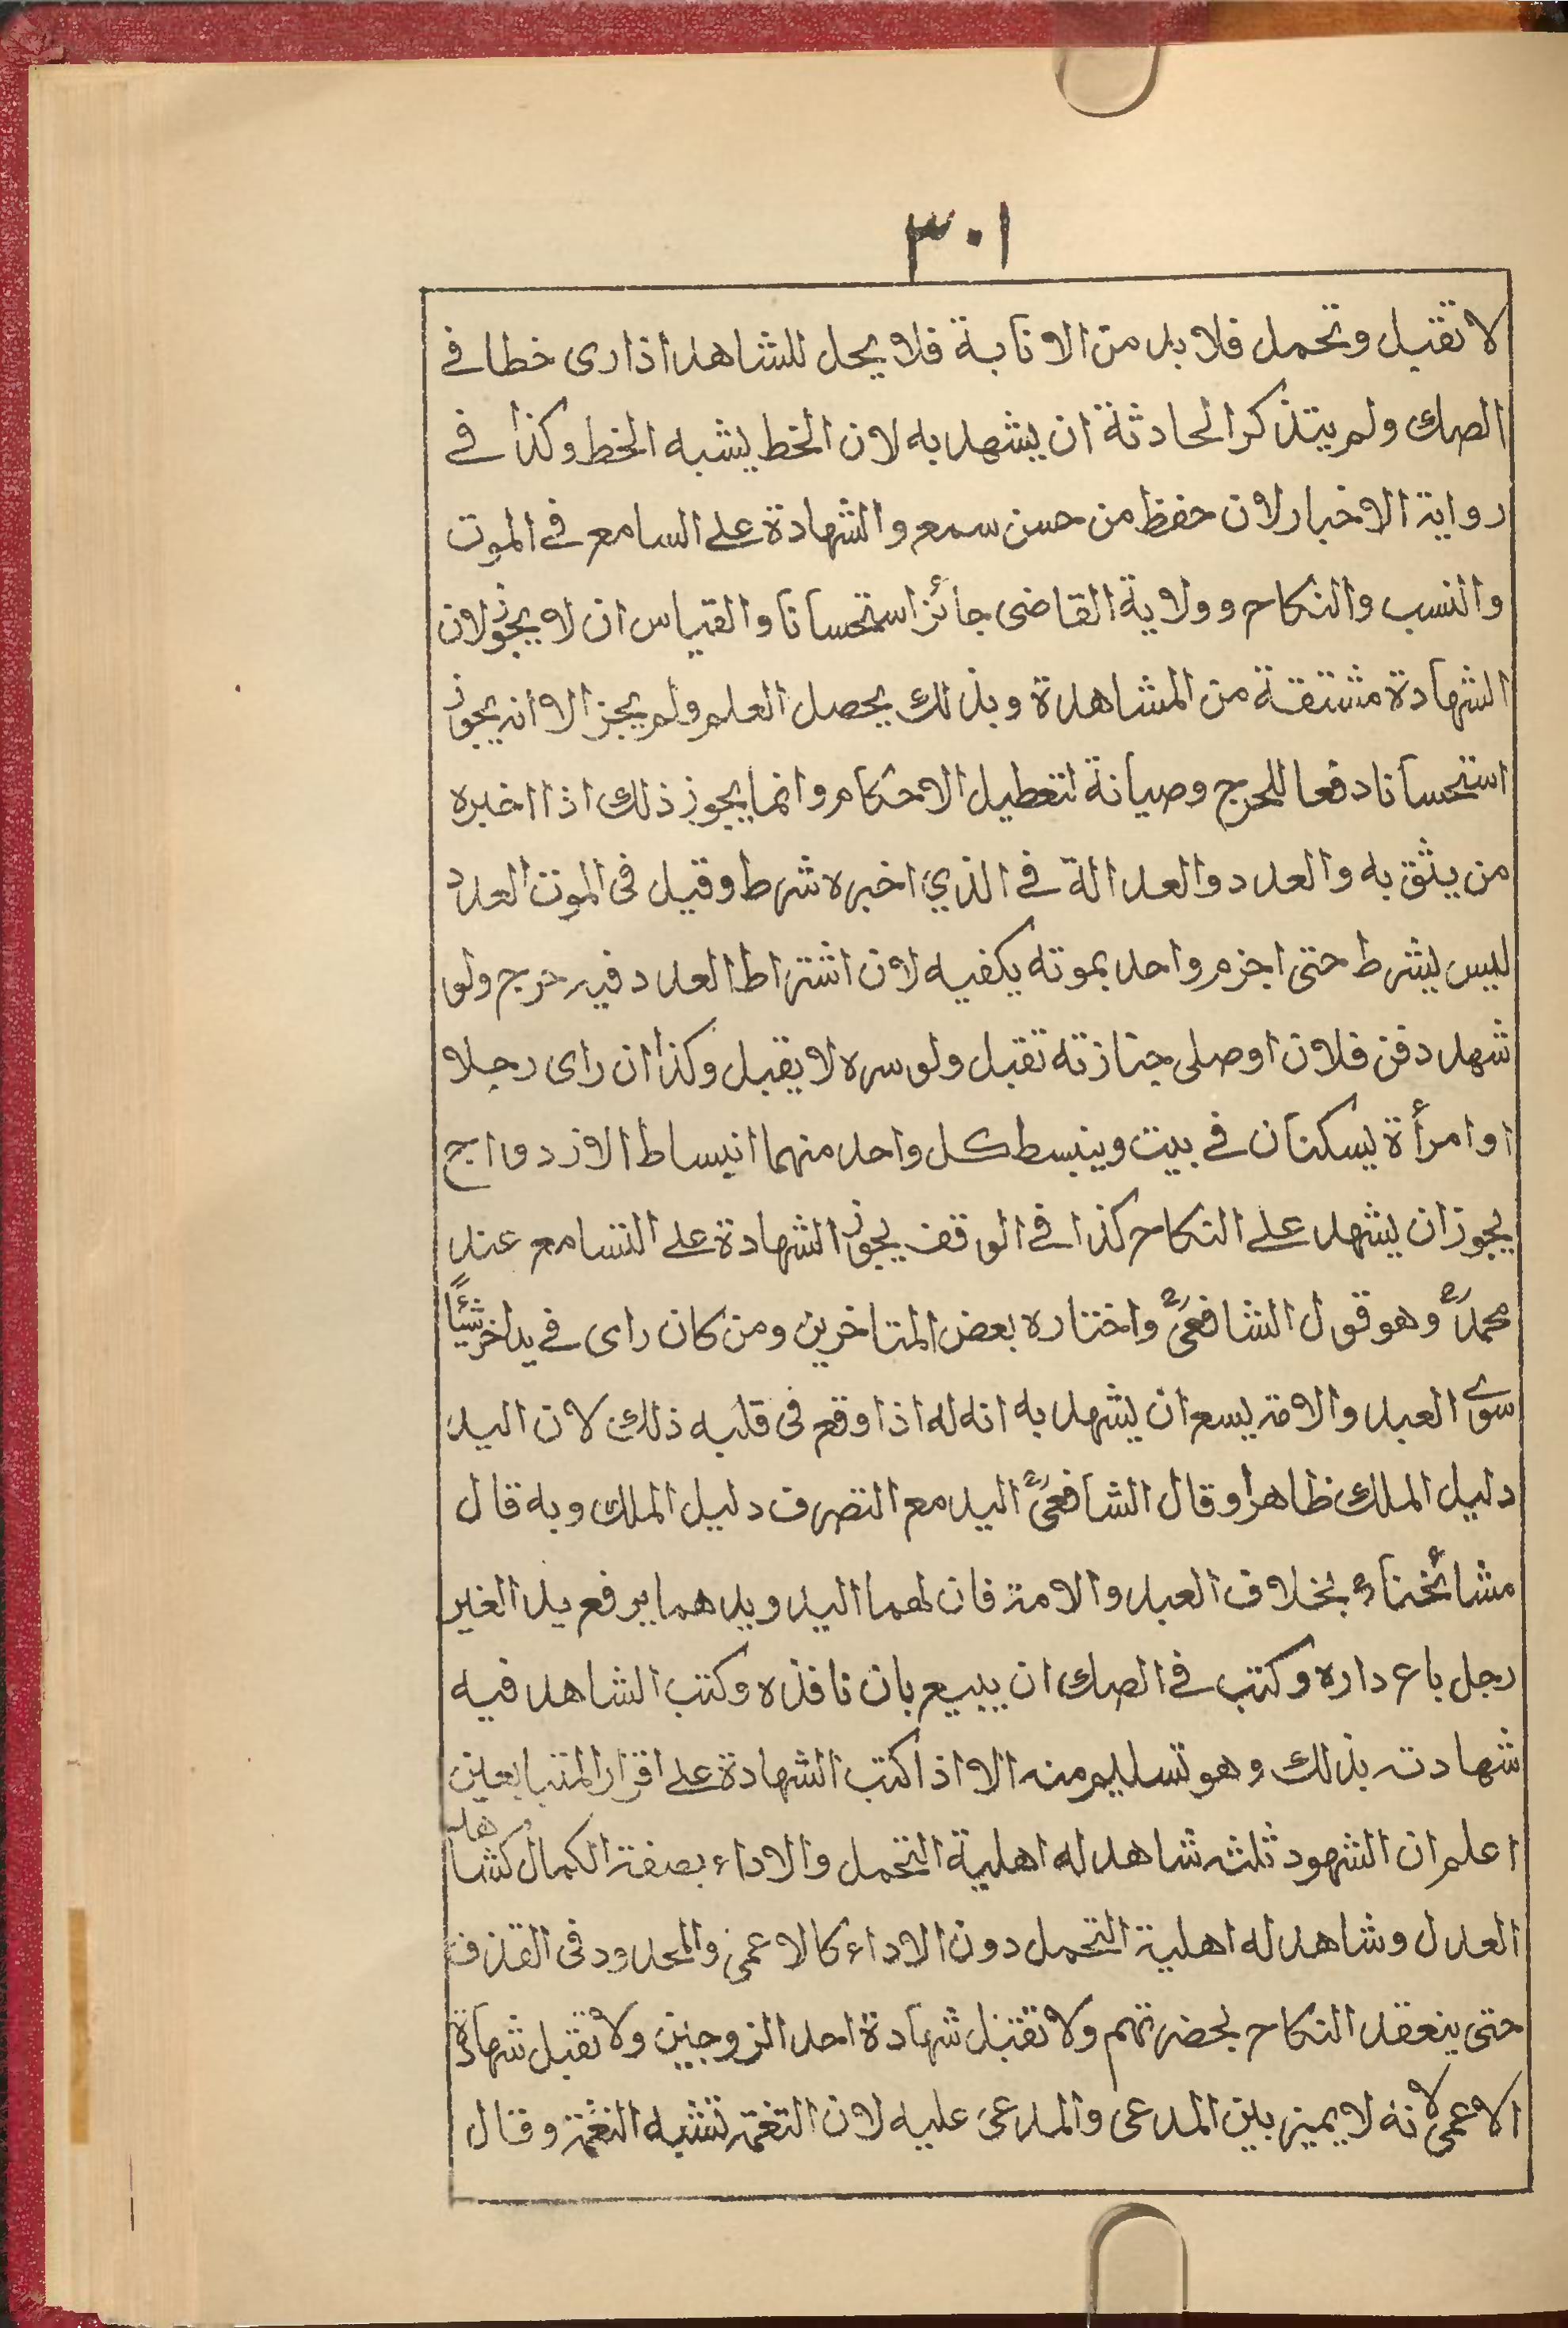 ٣٠١
لا تقبل وتحمل فلا بد من الانابة فلا يحل للشاهد اذا رى خطا في
الصك ولم يتذكر الحادثة ان يشهد به لان الخط يشبه الخط وكذا في
رواية الاخبار لان حفظ من حسن سمع والشهادة على السامع في الموت
والنسب والنكاح وولاية القاضى جائز استحسانا والقياس ان لا يجوز لان
الشهادة مشتقة من المشاهدة وبذلك يحصل العلم ولم يجز الا انه يجوز
استحسانا دفعا للحرج وصيانة لتعطيل الاحكام وانما يجوز ذلك اذا اخبره
من يثق به والعدد والعدالة في الذي اخبره شرط وقيل فى الموت العدد
ليس بشرط حتى اجزم واحد بموته يكفيه لان اشتراط العدد فيه حرج ولو
شهد دفن فلان او صلى جنازته تقبل ولو سره لا يقبل وكذا ان راى رجلا
او امرأة يسكنان في بيت وينبسط كل واحد منهما انبساط الازدواج
يجوز ان يشهد على النكاح كذا في الوقف يجوز الشهادة على التسامع عند
محمدؒ وهو قول الشافعىؒ واختاره بعض المتاخرين ومن كان راى في يد اخر شيئًا
سوى العبد والامة يسع ان يشهد به انه له اذا وقع فى قلبه ذلك لان اليد
دليل الملك ظاهرا وقال الشافعىؒ اليد مع التصرف دليل الملك وبه قال
مشائخناؒ بخلاف العبد والامة فان لهما اليد ويدهما يرفع يد الغير
رجل باع داره وكتب في الصك ان يبيع بان نافذه وكتب الشاهد فيه
شهادته بذلك وهو تسليم منه الا اذا كتب الشهادة على اقرار المتبايعين
اعلم ان الشهود ثلثه شاهد له اهلية التحمل والاداء بصفة الكمال كشاهد
العدل وشاهد له اهلية التحمل دون الاداء كالاعمى والمحدود فى القذف
حتى ينعقد النكاح بحضرتهم ولا تقبل شهادة احد الزوجين ولا تقبل شهادة
الاعمى لانه لا يميز بين المدعى والمدعى عليه لان النغمة تشبه النغمة وقال